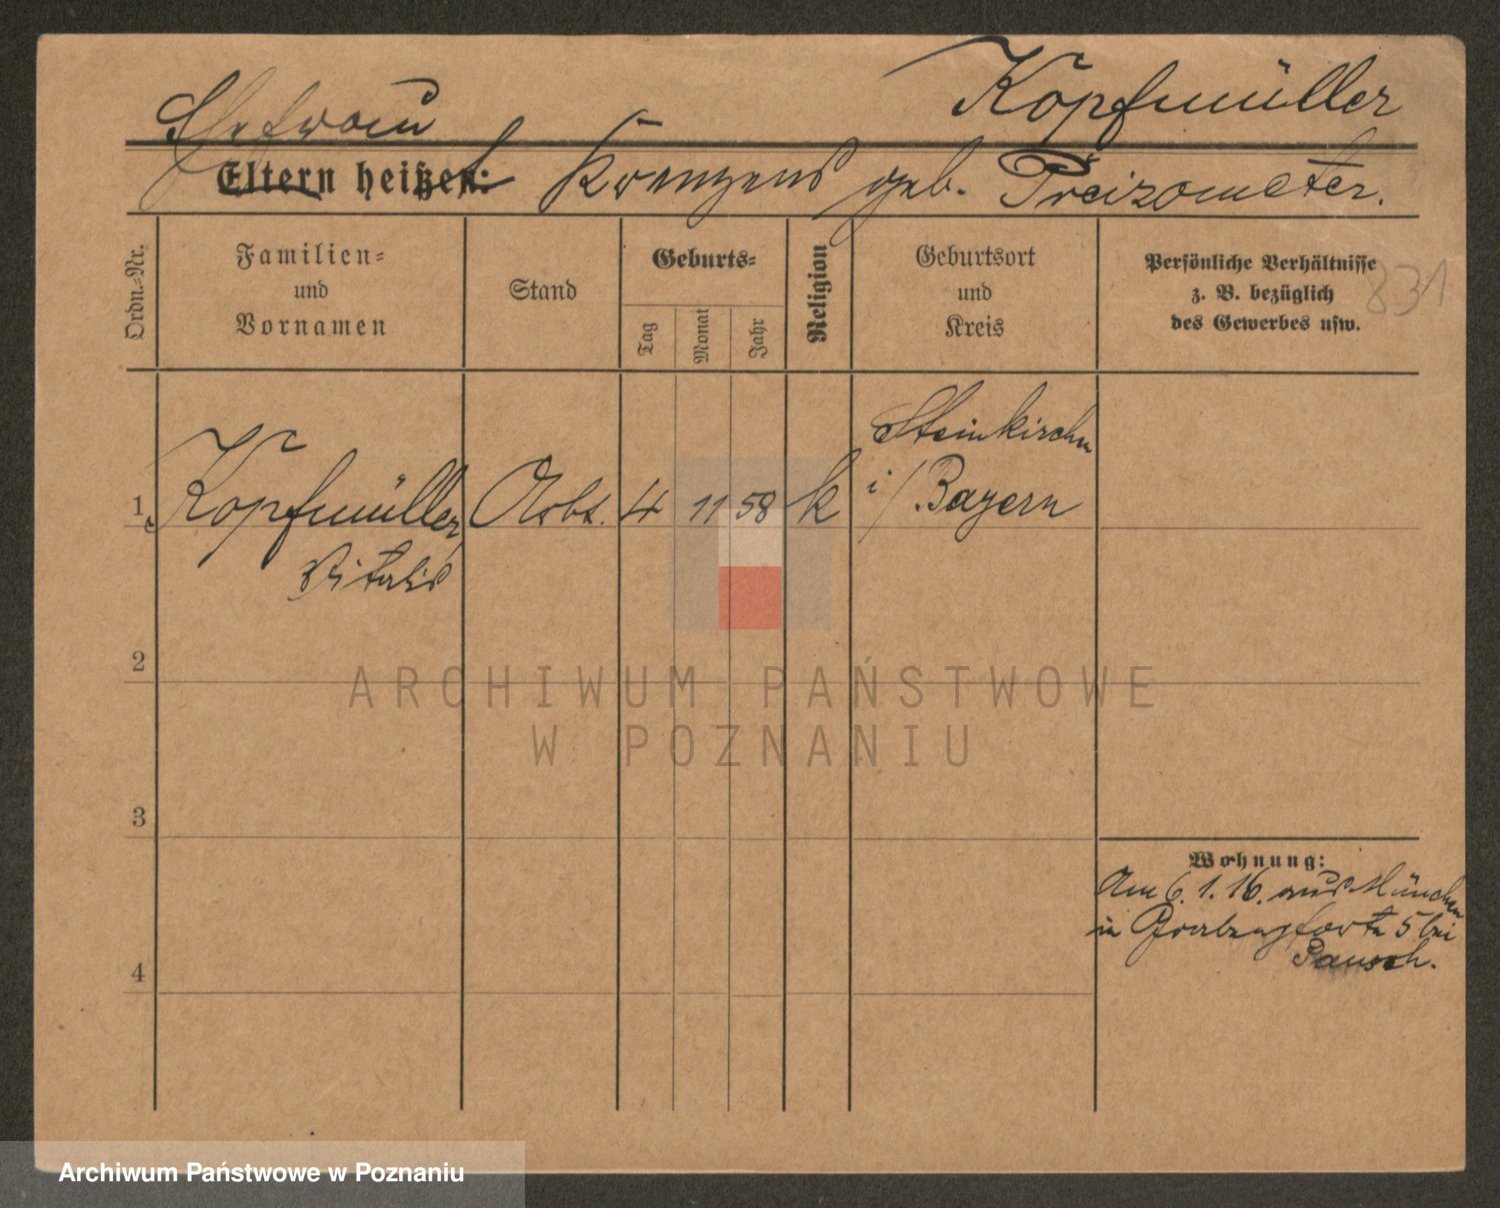 Kopfmüller
Ehefrau
Eltern heißen: Krenzens geb. Preizometer.
Ordn.-Nr.
Familien-
und
Vornamen
Stand
Geburts-
Tag
Monat
Jahr
Religion
Geburtsort
und
Kreis
Persönliche Verhältnisse
z. B. bezüglich
des Gewerbes usw.
831
Steinkirchen
1 Kopfmüller, Arbt. 4 11 58 k i/Bayern
Vitalis
2
3
4
Wohnung:
Am 6.1.16. aus München
in 5 bei
Pausch.
ARCHIWUM PAŃSTWOWE
W POZNANIU
Archiwum Państwowe w Poznaniu